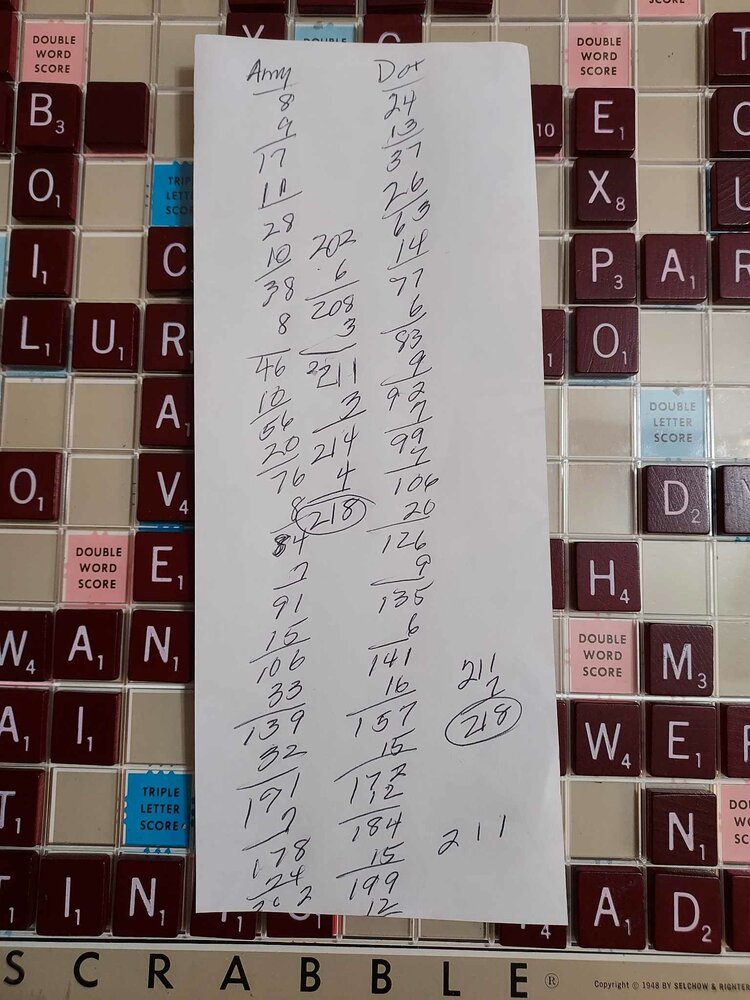 Amy
8
9
17
11
28
10
38
8
46
10
56
20
76
8
84
7
91
15
106
33
139
32
171
7
178
24
202
202
6
208
3
211
3
214
4
218
Dot
24
13
37
26
63
14
77
6
83
9
92
7
99
7
106
20
126
9
135
6
141
16
157
15
172
12
184
15
199
12
211
7
218
211
DOUBLE WORD SCORE
DOUBLE
DOUBLE WORD SCORE
SCORE
B3
10
E1
O1
TRIPLE LETTER SCORE
X8
I1
C
P3 A1 R
L1 U1 R1
O1
A1
DOUBLE LETTER SCORE
O1
V4
D2
DOUBLE WORD SCORE
E1
H4
W4 A1 N1
DOUBLE WORD SCORE
M3
A1 I1
W4 E1
TRIPLE LETTER SCORE
T1
N1
I1 N1
A1 D2
SCRABBLE®
Copyright © 1948 BY SELCHOW & RIGHTER